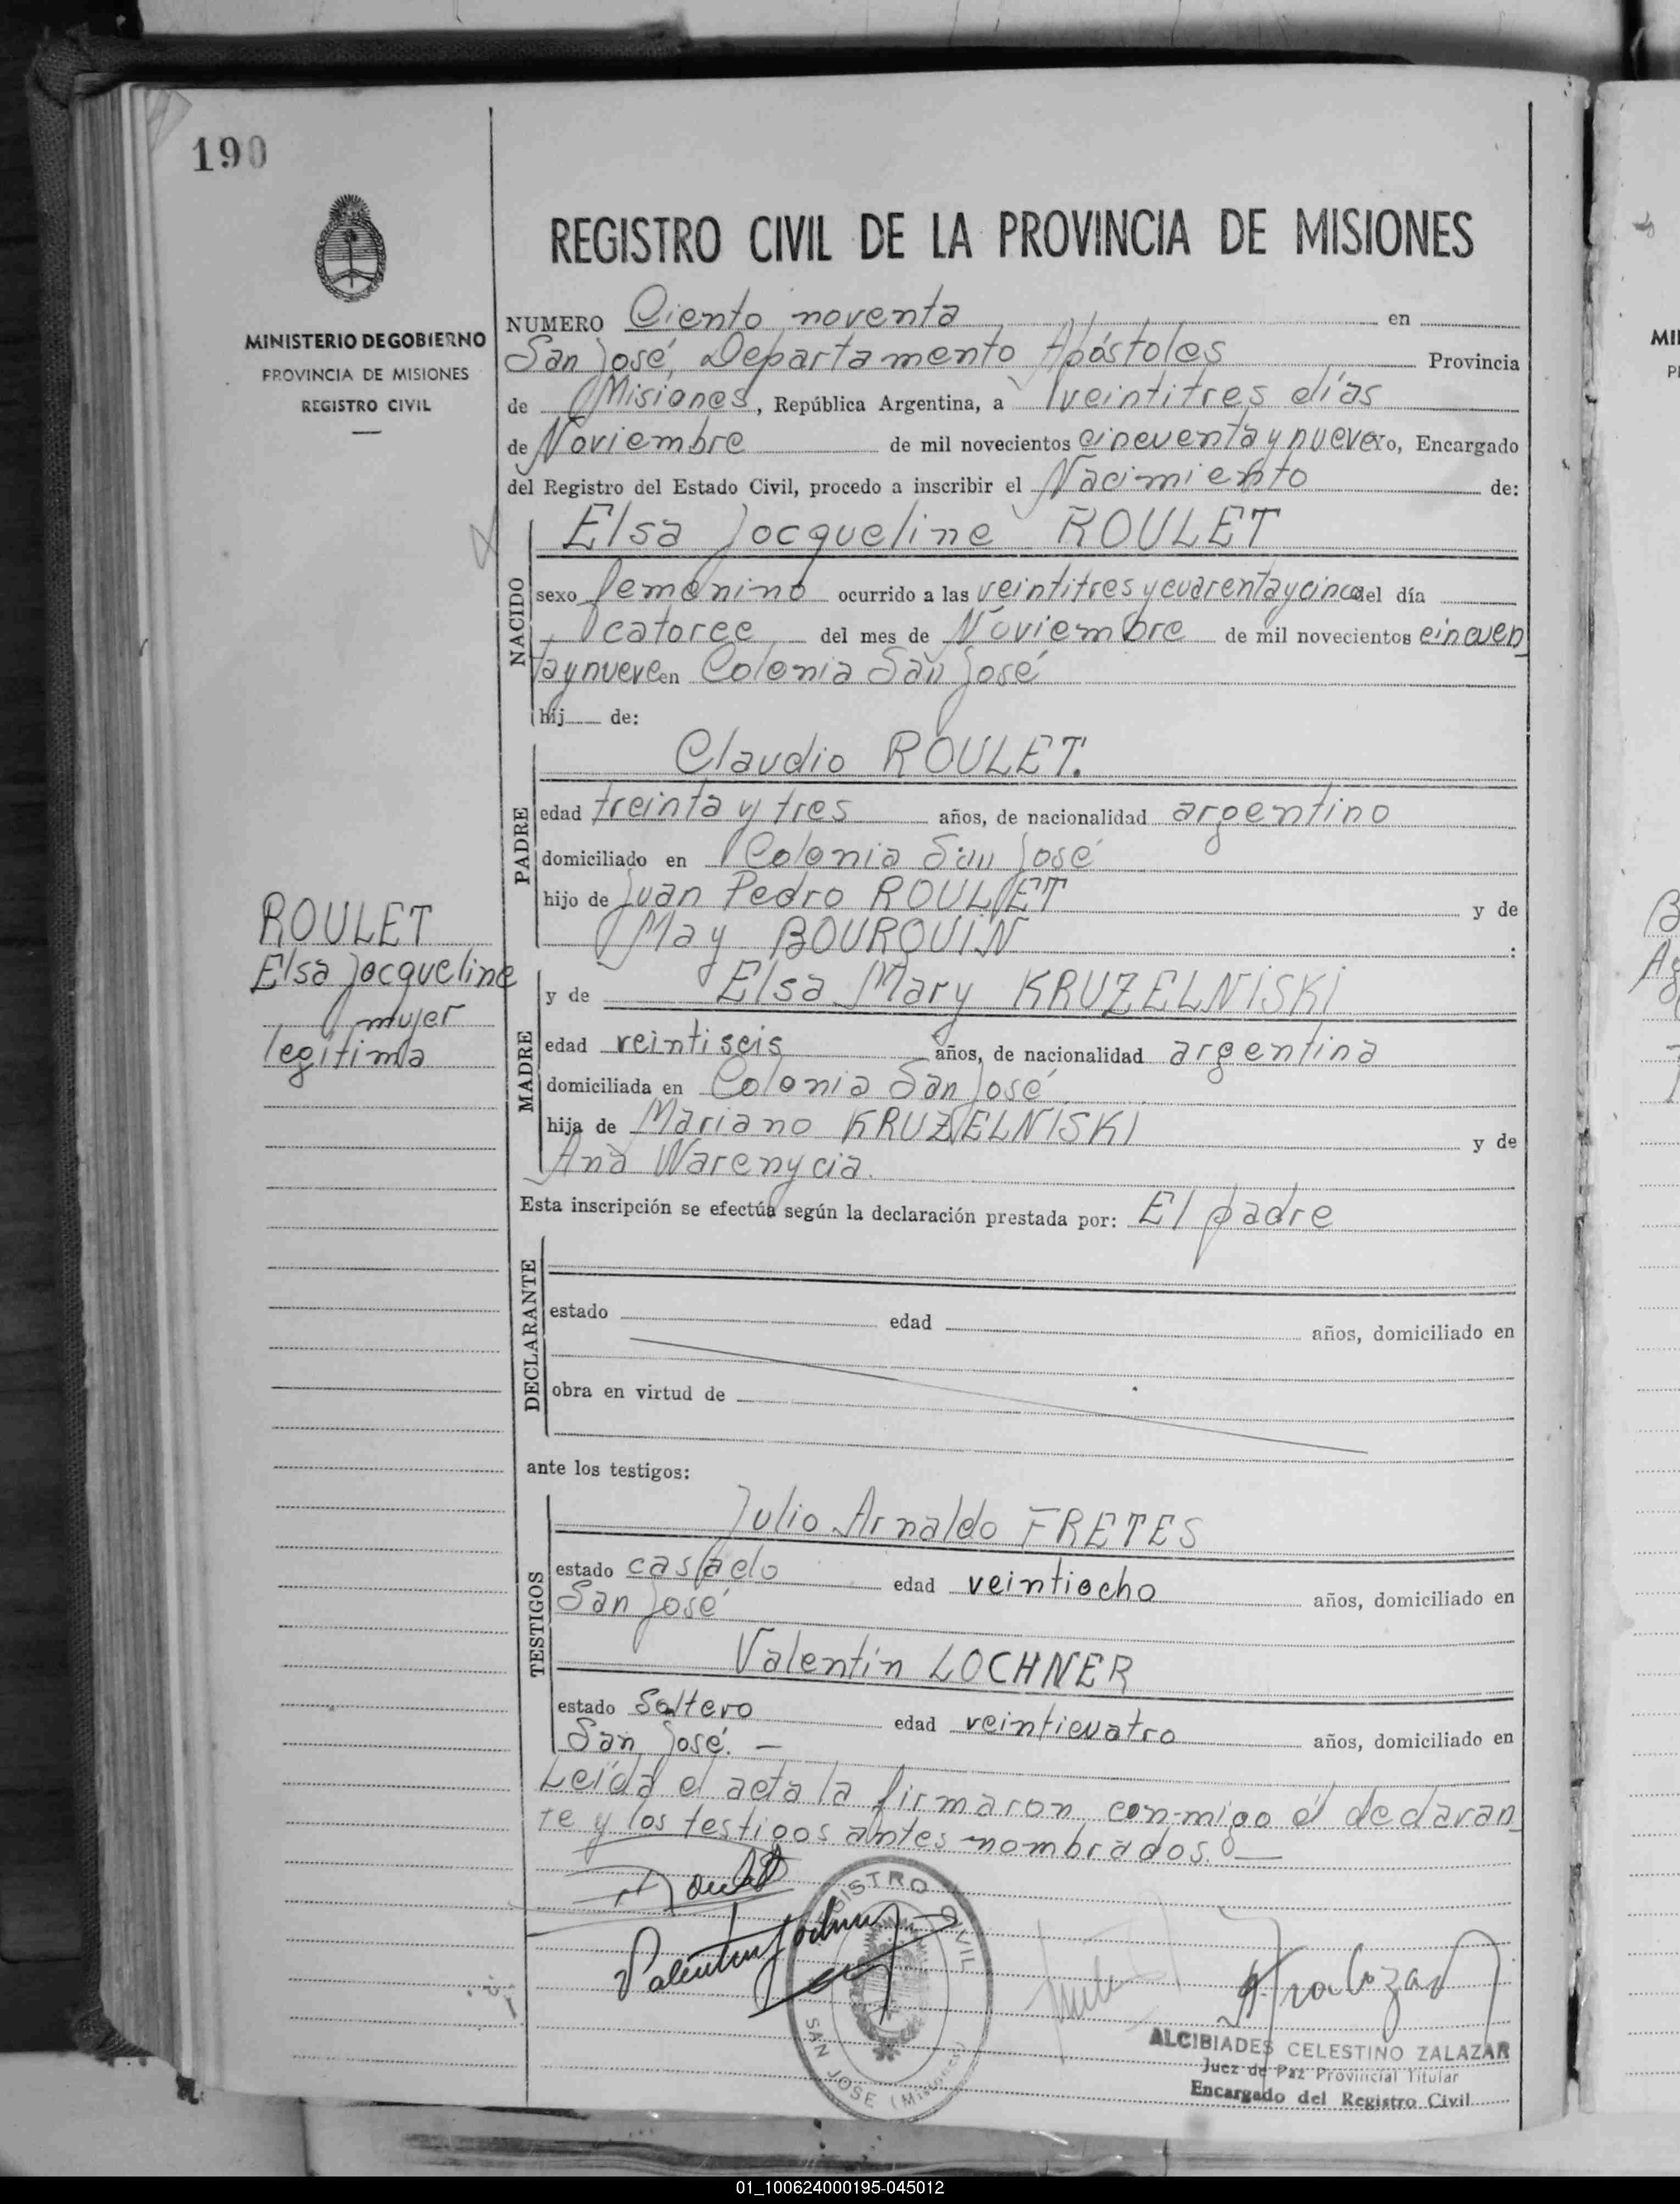 190
MINISTERIO DE GOBIERNO
PROVINCIA DE MISIONES
REGISTRO CIVIL
REGISTRO CIVIL DE LA PROVINCIA DE MISIONES
NUMERO Ciento noventa en
San José, Departamento Apóstoles Provincia
de Misiones, República Argentina, a veintitres días
de Noviembre de mil novecientos cincuenta y nueve Yo, Encargado
del Registro del Estado Civil, procedo a inscribir el Nacimiento de:
NACIDO
Elsa Jocqueline ROULET
sexo femenino ocurrido a las veintitres y cuarenta y cinco del día
catorce del mes de Noviembre de mil novecientos cincuen
ta y nueve en Colonia San José
hij de:
PADRE
Claudio ROULET.
edad treinta y tres años, de nacionalidad argentino
domiciliado en Colonia San José
hijo de Juan Pedro ROULET y de
May BOURQUIN :
ROULET
Elsa Jocqueline
mujer
legítima
MADRE
y de Elsa Mary KRUZELNISKI
edad veintiseis años, de nacionalidad argentina
domiciliada en Colonia San José
hija de Mariano KRUZELNISKI y de
Ana Warenycia.
Esta inscripción se efectúa según la declaración prestada por: El padre
DECLARANTE
estado edad años, domiciliado en
obra en virtud de
ante los testigos:
TESTIGOS
Julio Arnaldo FRETES
estado casado edad veintiocho años, domiciliado en
San José
Valentín LOCHNER
estado Soltero edad veinticuatro años, domiciliado en
San José. —
Leída el acta la firmaron con-migo el declaran
te y los testigos antes nombrados. —
Valentin Lochner
REGISTRO CIVIL
SAN JOSE (Misiones)
ALCIBIADES CELESTINO ZALAZAR
Juez de Paz Provincial Titular
Encargado del Registro Civil
01_100624000195-045012